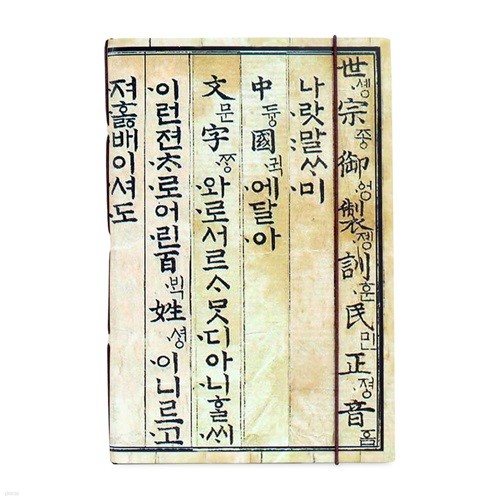 世솅宗종御엉製졩訓훈民민正졍音ᅙᅳᆷ
나랏말ᄊᆞ미
中듕國귁에달아
文문字ᄍᆞᆼ와로서르ᄉᆞᄆᆞᆺ디아니ᄒᆞᆯᄊᆡ
이런젼ᄎᆞ로어린百ᄇᆡᆨ姓셩이니르고
져홇배이셔도